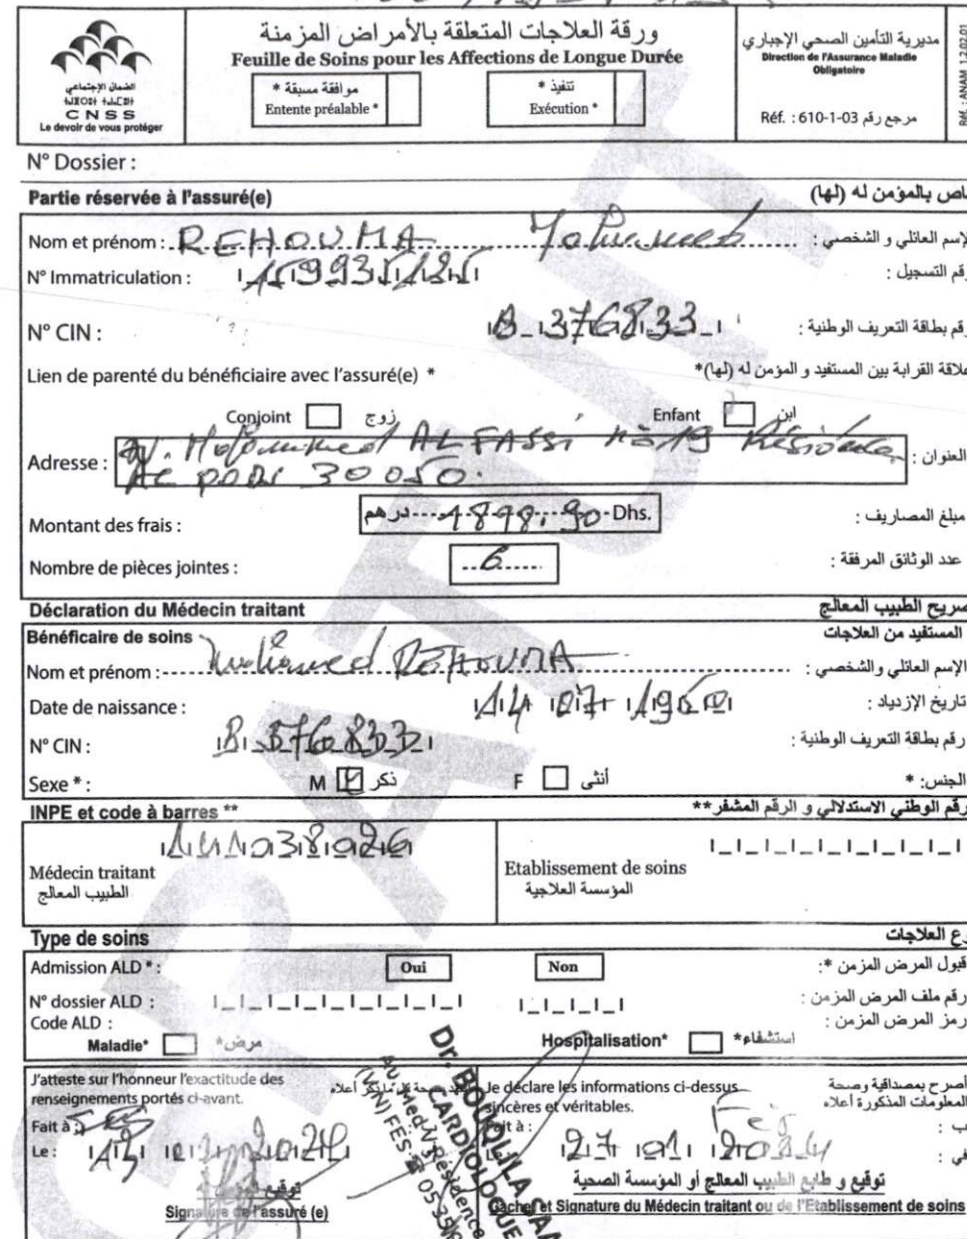 ورقة العلاجات المتعلقة بالأمراض المزمنة
Feuille de Soins pour les Affections de Longue Durée
موافقة مسبقة *
Entente préalable *
تنفيذ *
Exécution *
مديرية التأمين الصحي الإجباري
Direction de l'Assurance Maladie
Obligatoire
Réf. : 610-1-03 مرجع رقم
Réf. : ANAM 1.2.02.01
الضمان الإجتماعي
CNSS
Le devoir de vous protéger
N° Dossier :
Partie réservée à l'assuré(e) اص بالمؤمن له (لها)
Nom et prénom : REHOUMA Mohammed لإسم العائلي و الشخصي :
N° Immatriculation : رقم التسجيل :
N° CIN : B 376833 رقم بطاقة التعريف الوطنية :
Lien de parenté du bénéficiaire avec l'assuré(e) * علاقة القرابة بين المستفيد و المؤمن له (لها)*
Conjoint زوج Enfant ابن
Adresse : Mohammed AL FASSI n° 19 Résidence العنوان :
30050.
Montant des frais : درهم 1898.90 Dhs. مبلغ المصاريف :
Nombre de pièces jointes : 6 عدد الوثائق المرفقة :
Déclaration du Médecin traitant صريح الطبيب المعالج
Bénéficaire de soins المستفيد من العلاجات
Nom et prénom : Mohamed REHOUMA الإسم العائلي والشخصي :
Date de naissance : 14 07 تاريخ الإزدياد :
N° CIN : B 376833 رقم بطاقة التعريف الوطنية :
Sexe * : M ذكر F أنثى الجنس: *
INPE et code à barres ** رقم الوطني الاستدلالي و الرقم المشفر**
Médecin traitant
الطبيب المعالج
Etablissement de soins
المؤسسة العلاجية
Type de soins وع العلاجات
Admission ALD * : Oui Non قبول المرض المزمن *:
N° dossier ALD : رقم ملف المرض المزمن :
Code ALD : رمز المرض المزمن :
Maladie* مرض* Hospitalisation* استشفاء*
J'atteste sur l'honneur l'exactitude des
renseignements portés ci-avant.
Fait à :
Le :
توقيع
Signature de l'assuré (e)
Je déclare les informations ci-dessus
sincères et véritables.
Fait à : Fès
27 01 2024
أصرح بمصداقية وصحة
المعلومات المذكورة أعلاه
ب :
في :
توقيع و طابع الطبيب المعالج أو المؤسسة الصحية
Cachet et Signature du Médecin traitant ou de l'Etablissement de soins
CARDIOLOGUE
(V.N) FES
GRATUIT